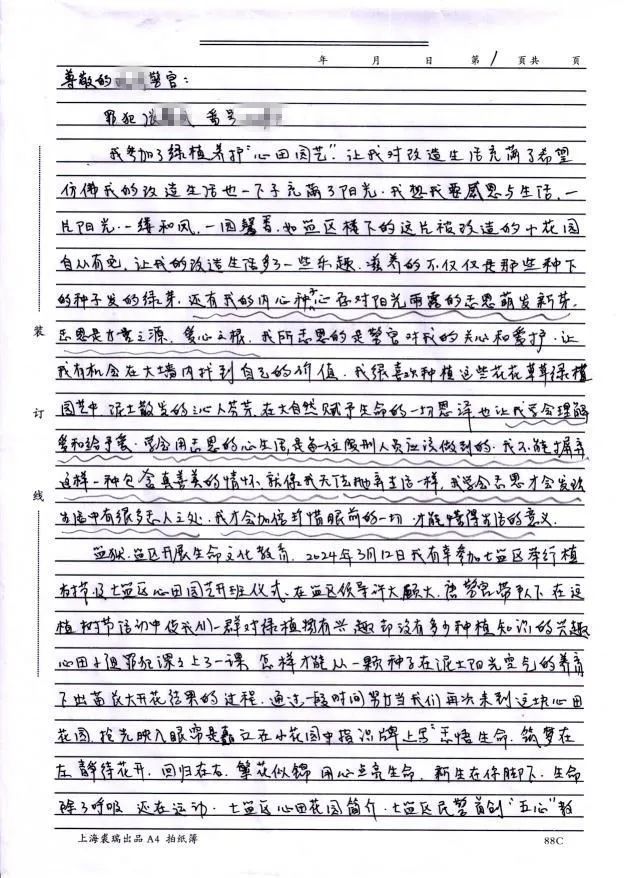 年 月 日 第 1 页共 页
尊敬的 警官:
罪犯 番号
我参加了绿植养护"心田园艺".让我对改造生活充满了希望
仿佛我的改造生活也一下子充满了阳光.我想我要感恩与生活,一
片阳光.一缕和风,一园馨香,如监区楼下的这片被改造的小花园
自从有它,让我的改造生活多了一些乐趣.滋养的不仅仅是那些种下
的种子发的绿芽.还有我的内心种子心存对阳光雨露的感恩萌发新芽.
感恩是力量之源,爱心之根,我所感恩的是警官对我的关心和爱护.让
我有机会在大墙内找到自己的价值.我很喜欢种植这些花花草草绿植
园艺中,泥土散发的沁人芬芳.在大自然赋予生命的一切恩泽也让我学会理解
爱和给予爱.学会用感恩的心生活,是每一位服刑人员应该做到的.我不能摒弃
这样一种包含真善美的情怀.就像我无法抛弃生活一样.我学会感恩才会发现
生活中有很多感人之处.我才会加倍珍惜眼前的一切 才能懂得生活的意义.
监狱.监区开展生命文化教育.2024年3月12日我有幸参加七监区举行植
树节及七监区心田园艺开班仪式.在监区领导 警官带领下在这
植树节活动中使我们一群对绿植拥有兴趣却没有多少种植知识的兴趣
心田小组罪犯课上上了一课.怎样才能从一颗种子在泥土阳光空气的养育
下出苗长大开花结果的过程.通过一段时间努力当我们再次来到这块心田
花园.抢先映入眼帘是矗立在小花园中指识牌上写"感悟生命.筑梦在
左 静待花开.回归在右.繁花似锦 用心点亮生命.新生在你脚下.生命
除了呼吸 还在运动.七监区心田花园简介.七监区民警首创"五心"教
装
订
线
上海裘瑞出品A4 拍纸簿 88C